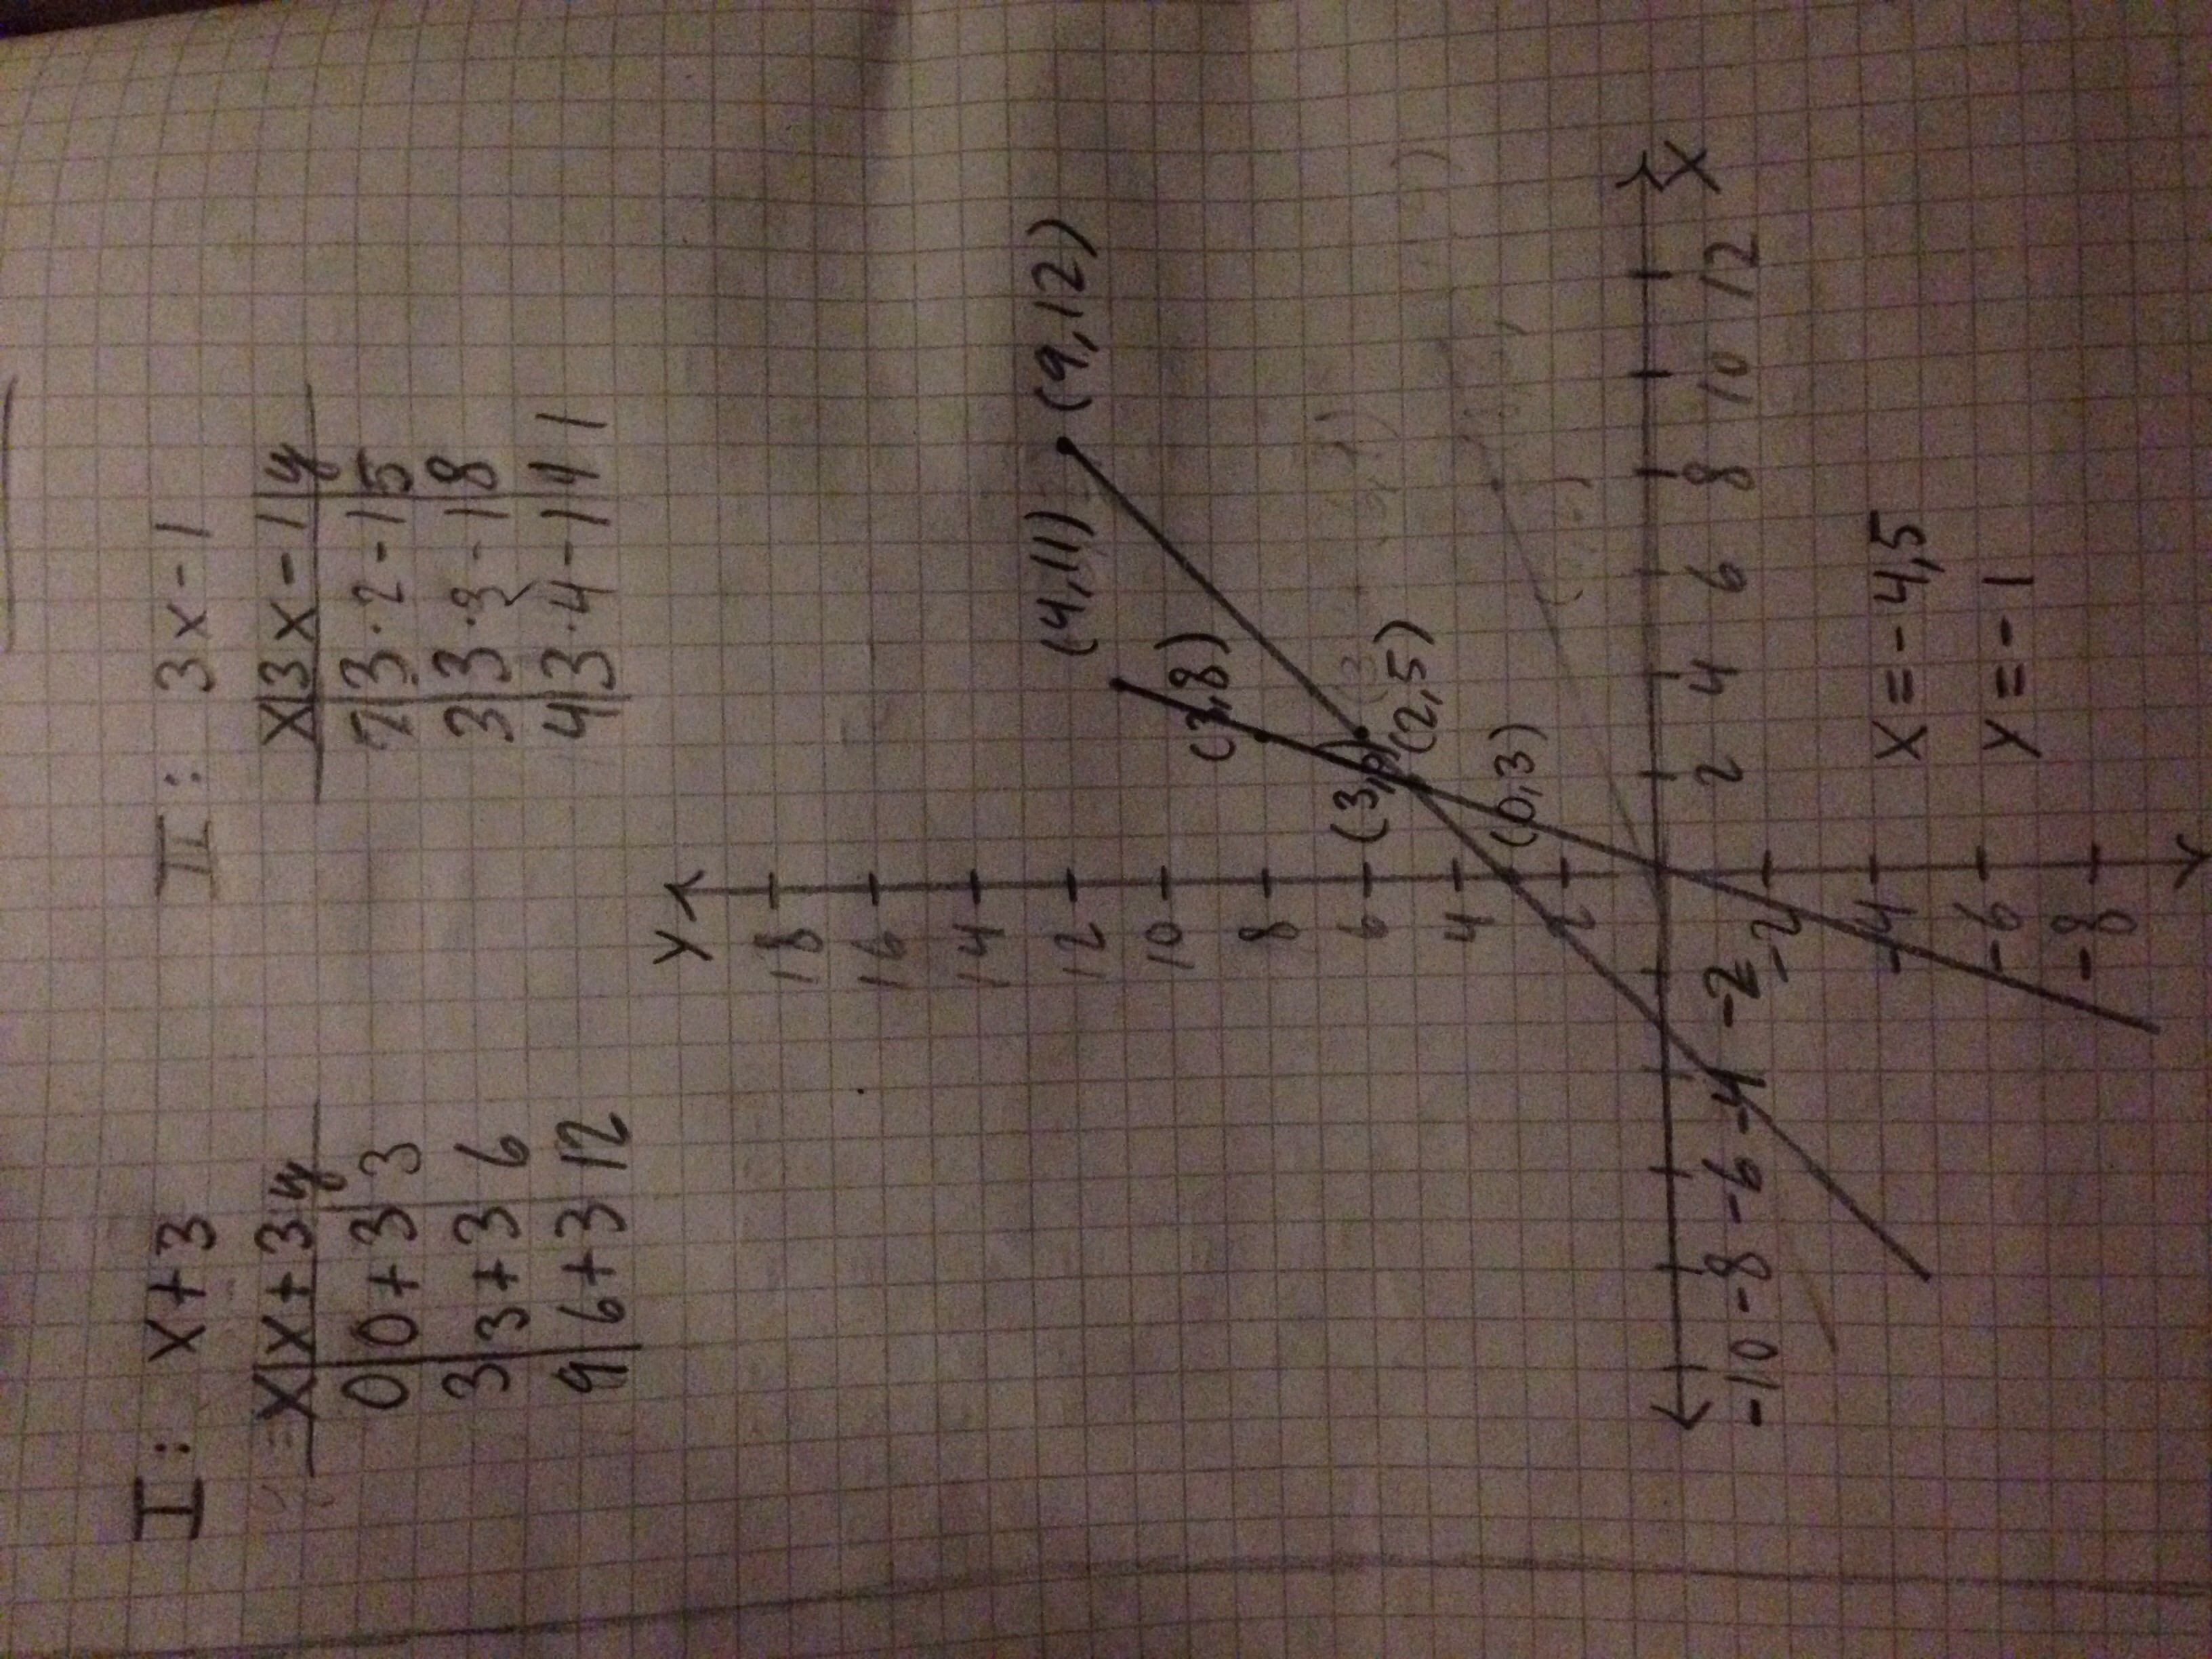 I: x+3
x|x+3|y
0|0+3|3
3|3+3|6
9|6+3|12
II: 3x-1
x|3x-1|y
2|3·2-1|5
3|3·3-1|8
4|3·4-1|11
Y
18
16
14
12
10
8
6
4
2
-2
-4
-6
-8
-10 -8 -6 -4 -2 2 4 6 8 10 12
X
(4,11)
(9,12)
(3,8)
(3,6)
(2,5)
(0,3)
x=-4,5
y=-1